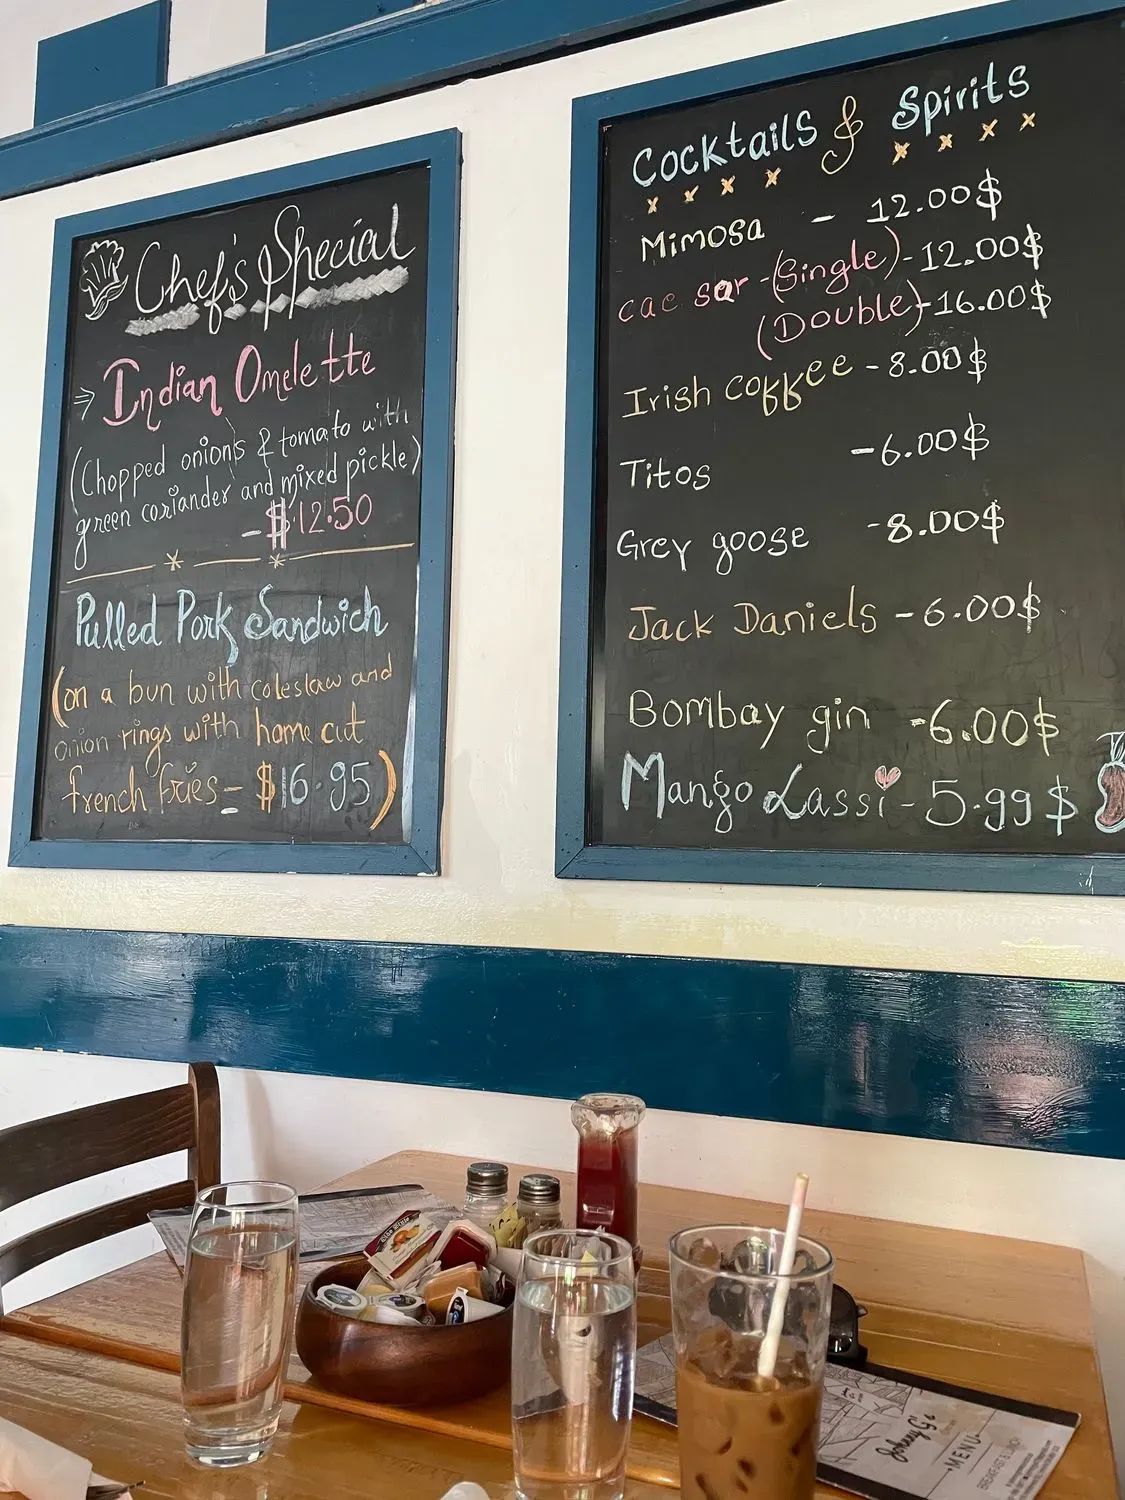 Chef's Special
Indian Omelette
(Chopped onion's & tomato with
green coriander and mixed pickle)
- $ 12.50
Pulled Pork Sandwich
(on a bun with coleslaw and
onion rings with home cut
french fries - $16.95)
Cocktails & Spirits
x x x x x x x x
Mimosa - 12.00$
cae sar - (Single) - 12.00$
(Double) - 16.00$
Irish coffee - 8.00$
Titos - 6.00$
Grey goose - 8.00$
Jack Daniels - 6.00$
Bombay gin - 6.00$
Mango Lassi - 5.99 $
Johnny G's
MENU
BREAKFAST & LUNCH